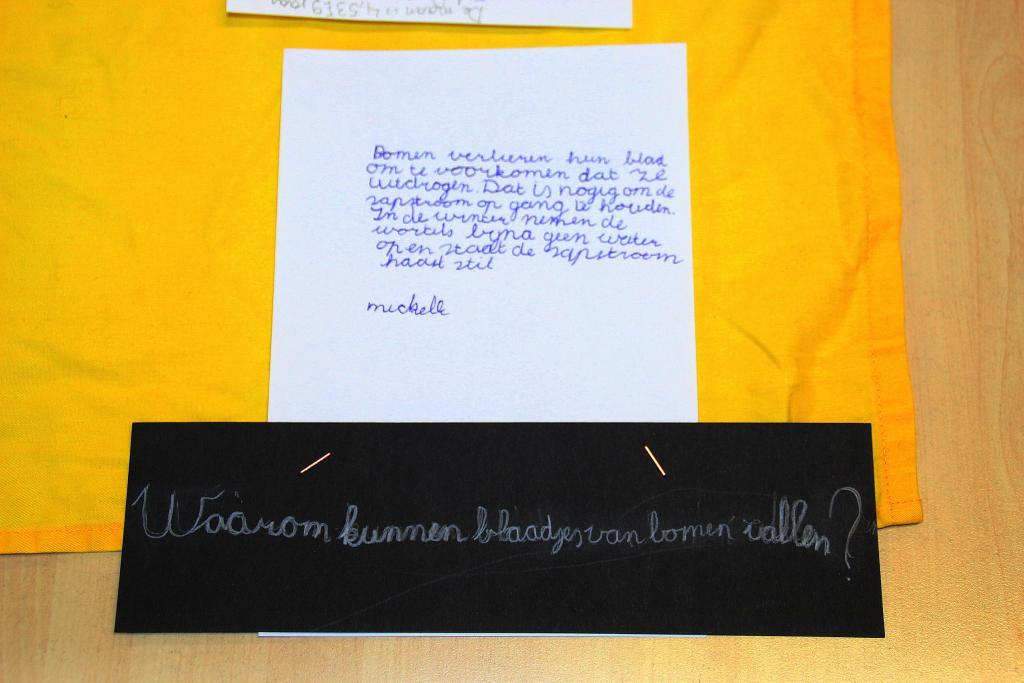 De maan is 4,53E9 jaar
Bomen verlieren hun blad
om te voorkomen dat ze
uitdrogen. Dat is nogig om de
sapstroom op gang te houden.
In de winter nemen de
wortels bijna geen water
op en staat de sapstroom
haast stil
mickelle
Waarom kunnen blaadjes van bomen vallen?